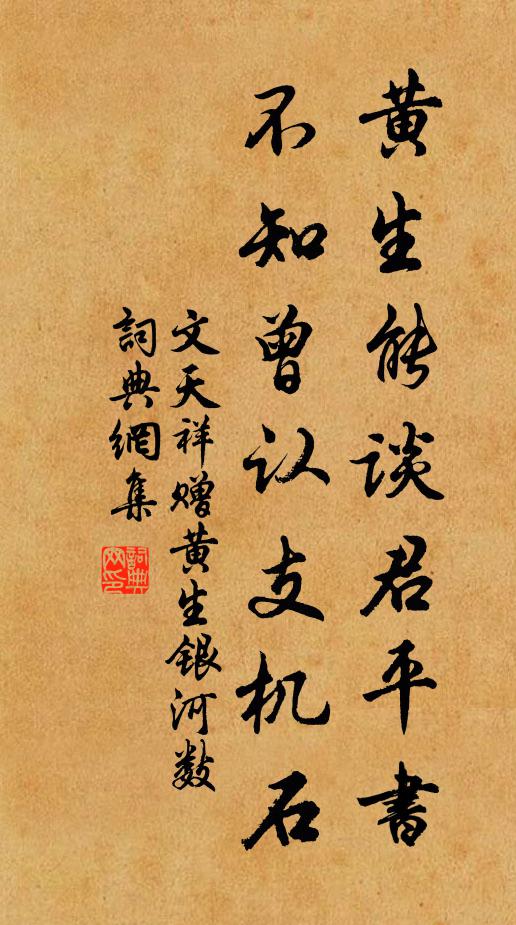 黄生能谈君平書
不知曾认支机石
文天祥赠黄生银河数
詞典網集
詞典网印